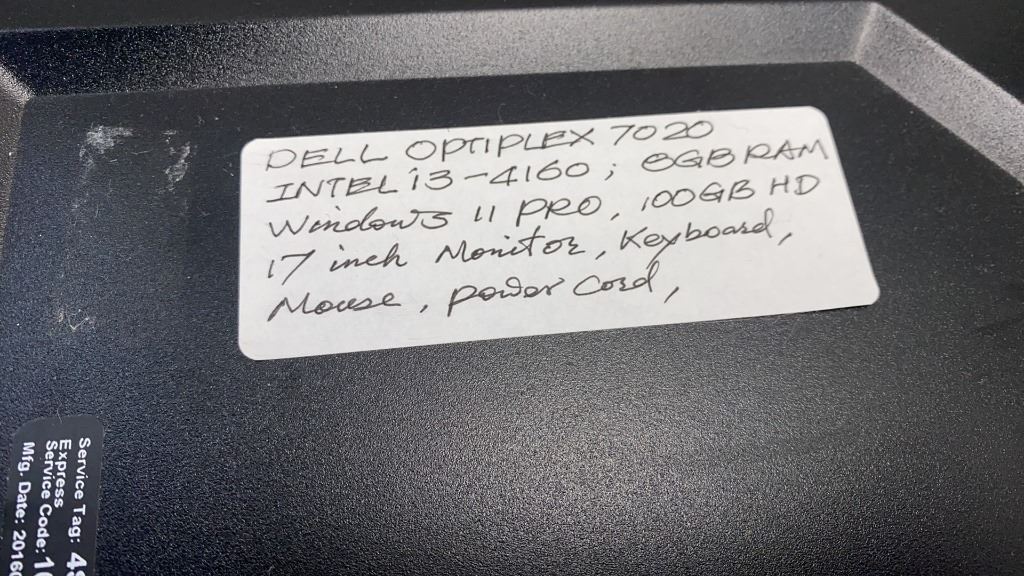 DELL OPTIPLEX 7020
INTEL i3-4160; 8GB RAM
Windows 11 PRO, 100GB HD
17 inch Monitor, Keyboard,
Mouse, power Cord,
Service Tag: 4S
Express
Service Code: 10
Mfg. Date: 2016